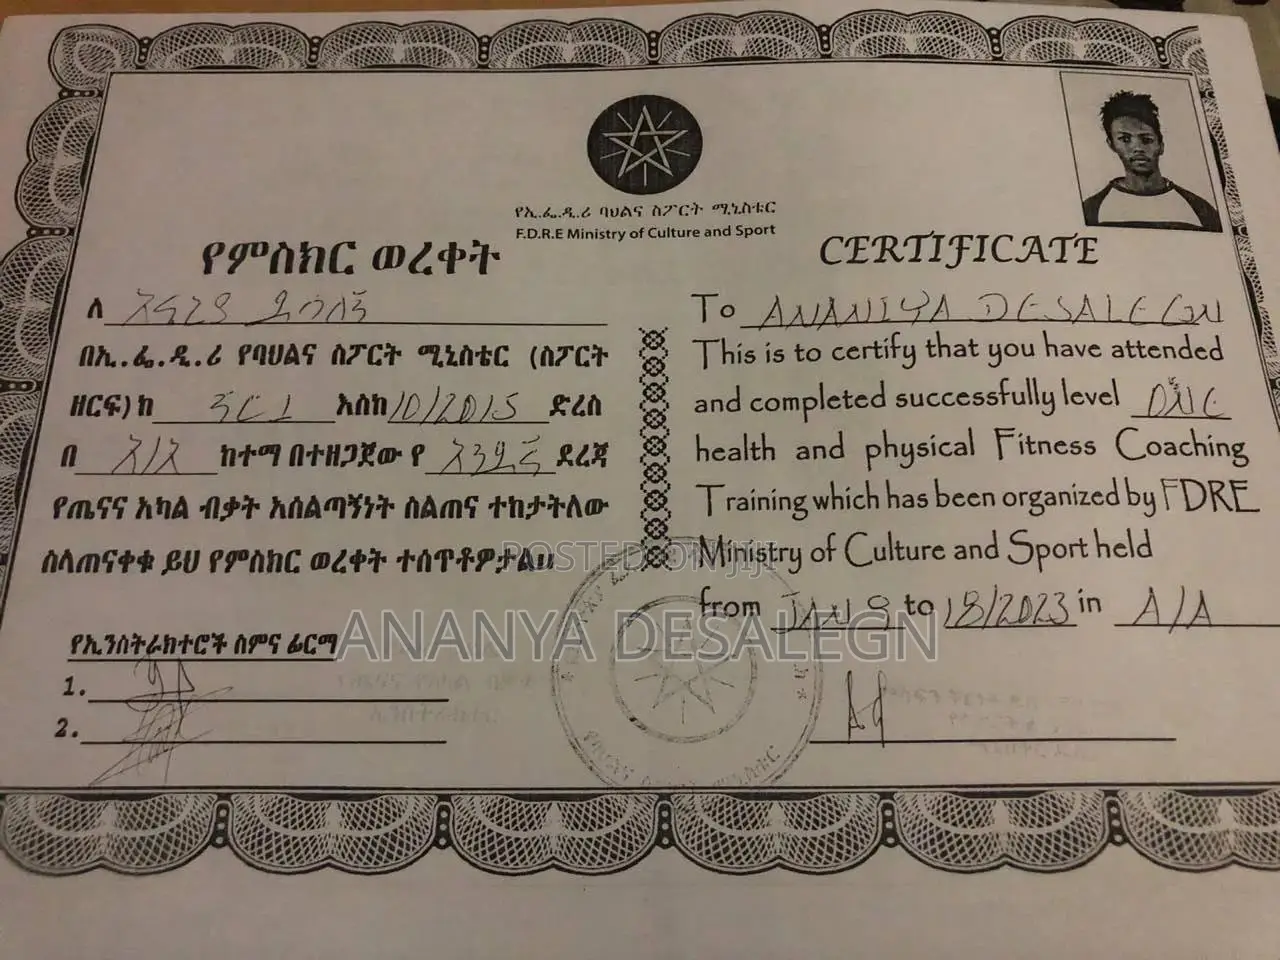 የኢ.ፌ.ዲ.ሪ ባህልና ስፖርት ሚኒስቴር
F.D.R.E Ministry of Culture and Sport
የምስክር ወረቀት
ለ
በኢ.ፌ.ዲ.ሪ የባህልና ስፖርት ሚኒስቴር (ስፖርት
ዘርፍ) ከ እስከ 10/2015 ድረስ
በ አ/አ ከተማ በተዘጋጀው የ አንደኛ ደረጃ
የጤናና አካል ብቃት አሰልጣኝነት ስልጠና ተከታትለው
ስላጠናቀቁ ይህ የምስክር ወረቀት ተሰጥቶዎታል።
የኢንስትራክተሮች ስምና ፊርማ
1.
2.
CERTIFICATE
To ANANIYA DESALEGN
This is to certify that you have attended
and completed successfully level ONE
health and physical Fitness Coaching
Training which has been organized by FDRE
Ministry of Culture and Sport held
from JAN 9 to 18/2023 in A/A
POSTED ON JIJI
ANANYA DESALEGN